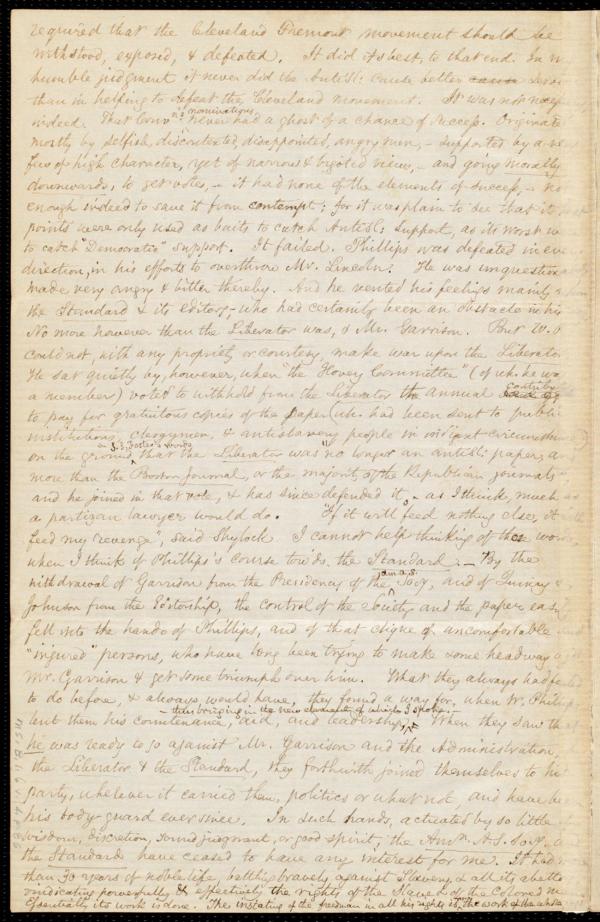 required that the Cleveland Fremont movement should be
withstood, exposed, & defeated. It did its best, to that end. In m
humble judgment it never did the Antisl: cause better cause serv
than in helping to defeat the Cleveland movement. It was not
indeed. That Convn:'s nominations never had a ghost of a chance of success. Originate
mostly by selfish, discontented, disappointed, angry men, - supported by a
few of high character, yet of narrow & bigoted views, - and going morally
downwards, to get votes, - it had none of the elements of success, - no
enough indeed to save it from contempt; for it was plain to see that it
points were only used as baits to catch Antisl: support, as its worst w
to catch "Democratic" support. It failed. Phillips was defeated in eve
direction, in his efforts to overthrow Mr. Lincoln. He was unquestion
made very angry & bitter thereby. And he vented his feelings mainly
the Standard & its editors, - who had certainly been an obstacle in his
No more however than the Liberator was, & Mr. Garrison. But W. P
could not, with any propriety or courtesy, make war upon the Liberato
He sat quietly by, however, when "the Hovey Committee" (of wh. he wa
a member) voted to withhold from the Liberator the annual contribu
to pay for gratuitous copies of the paper (wh. had been sent to publi
institutions, clergymen, & antislavery people in indigent circumstan
on the ground, S.S. Foster's words, that the Liberator was "no longer an antisl: paper, an
more than the Boston Journal, or the majority of the Republican journals"
and he joined in that vote, & has since defended it, - as I think, much
a partizan lawyer would do. "If it will feed nothing else, it
feed my revenge", said Shylock. I cannot help thinking of those wor
when I think of Phillips's course tow'ds. the Standard. - By the
withdrawal of Garrison from the Presidency of the Am. A. S. Socy, and of Quincy &
Johnson from the Editorship, the control of the Society and the paper eas
fell into the hands of Phillips, and of that clique of uncomfortable
"injured" persons, who have long been trying to make some headway a
Mr. Garrison & get some triumph over him. What they always had
to do before, & always would have, they found a way for, when W. Philip
lent them his countenance, aid, and leadership, - thus bringing in the new element of which I spoke. - When they saw th
he was ready to go against Mr. Garrison and the Administration,
the Liberator & the Standard, they forthwith joined themselves to hi
party, wherever it carried them, politics or what not, and have be
his body-guard ever since. In such hands, actuated by so little
wisdom, discretion, sound judgment, or good spirit, the Amn. A. S. Socy.
the Standard have ceased to have any interest for me. It had
than 30 years of noble life, battling bravely against Slavery, & all its abetto
vindicating powerfully & effectively the rights of the Slave & of the Colored m
Essentially its work is done. The instating of the freedman in all his rights is the work of the